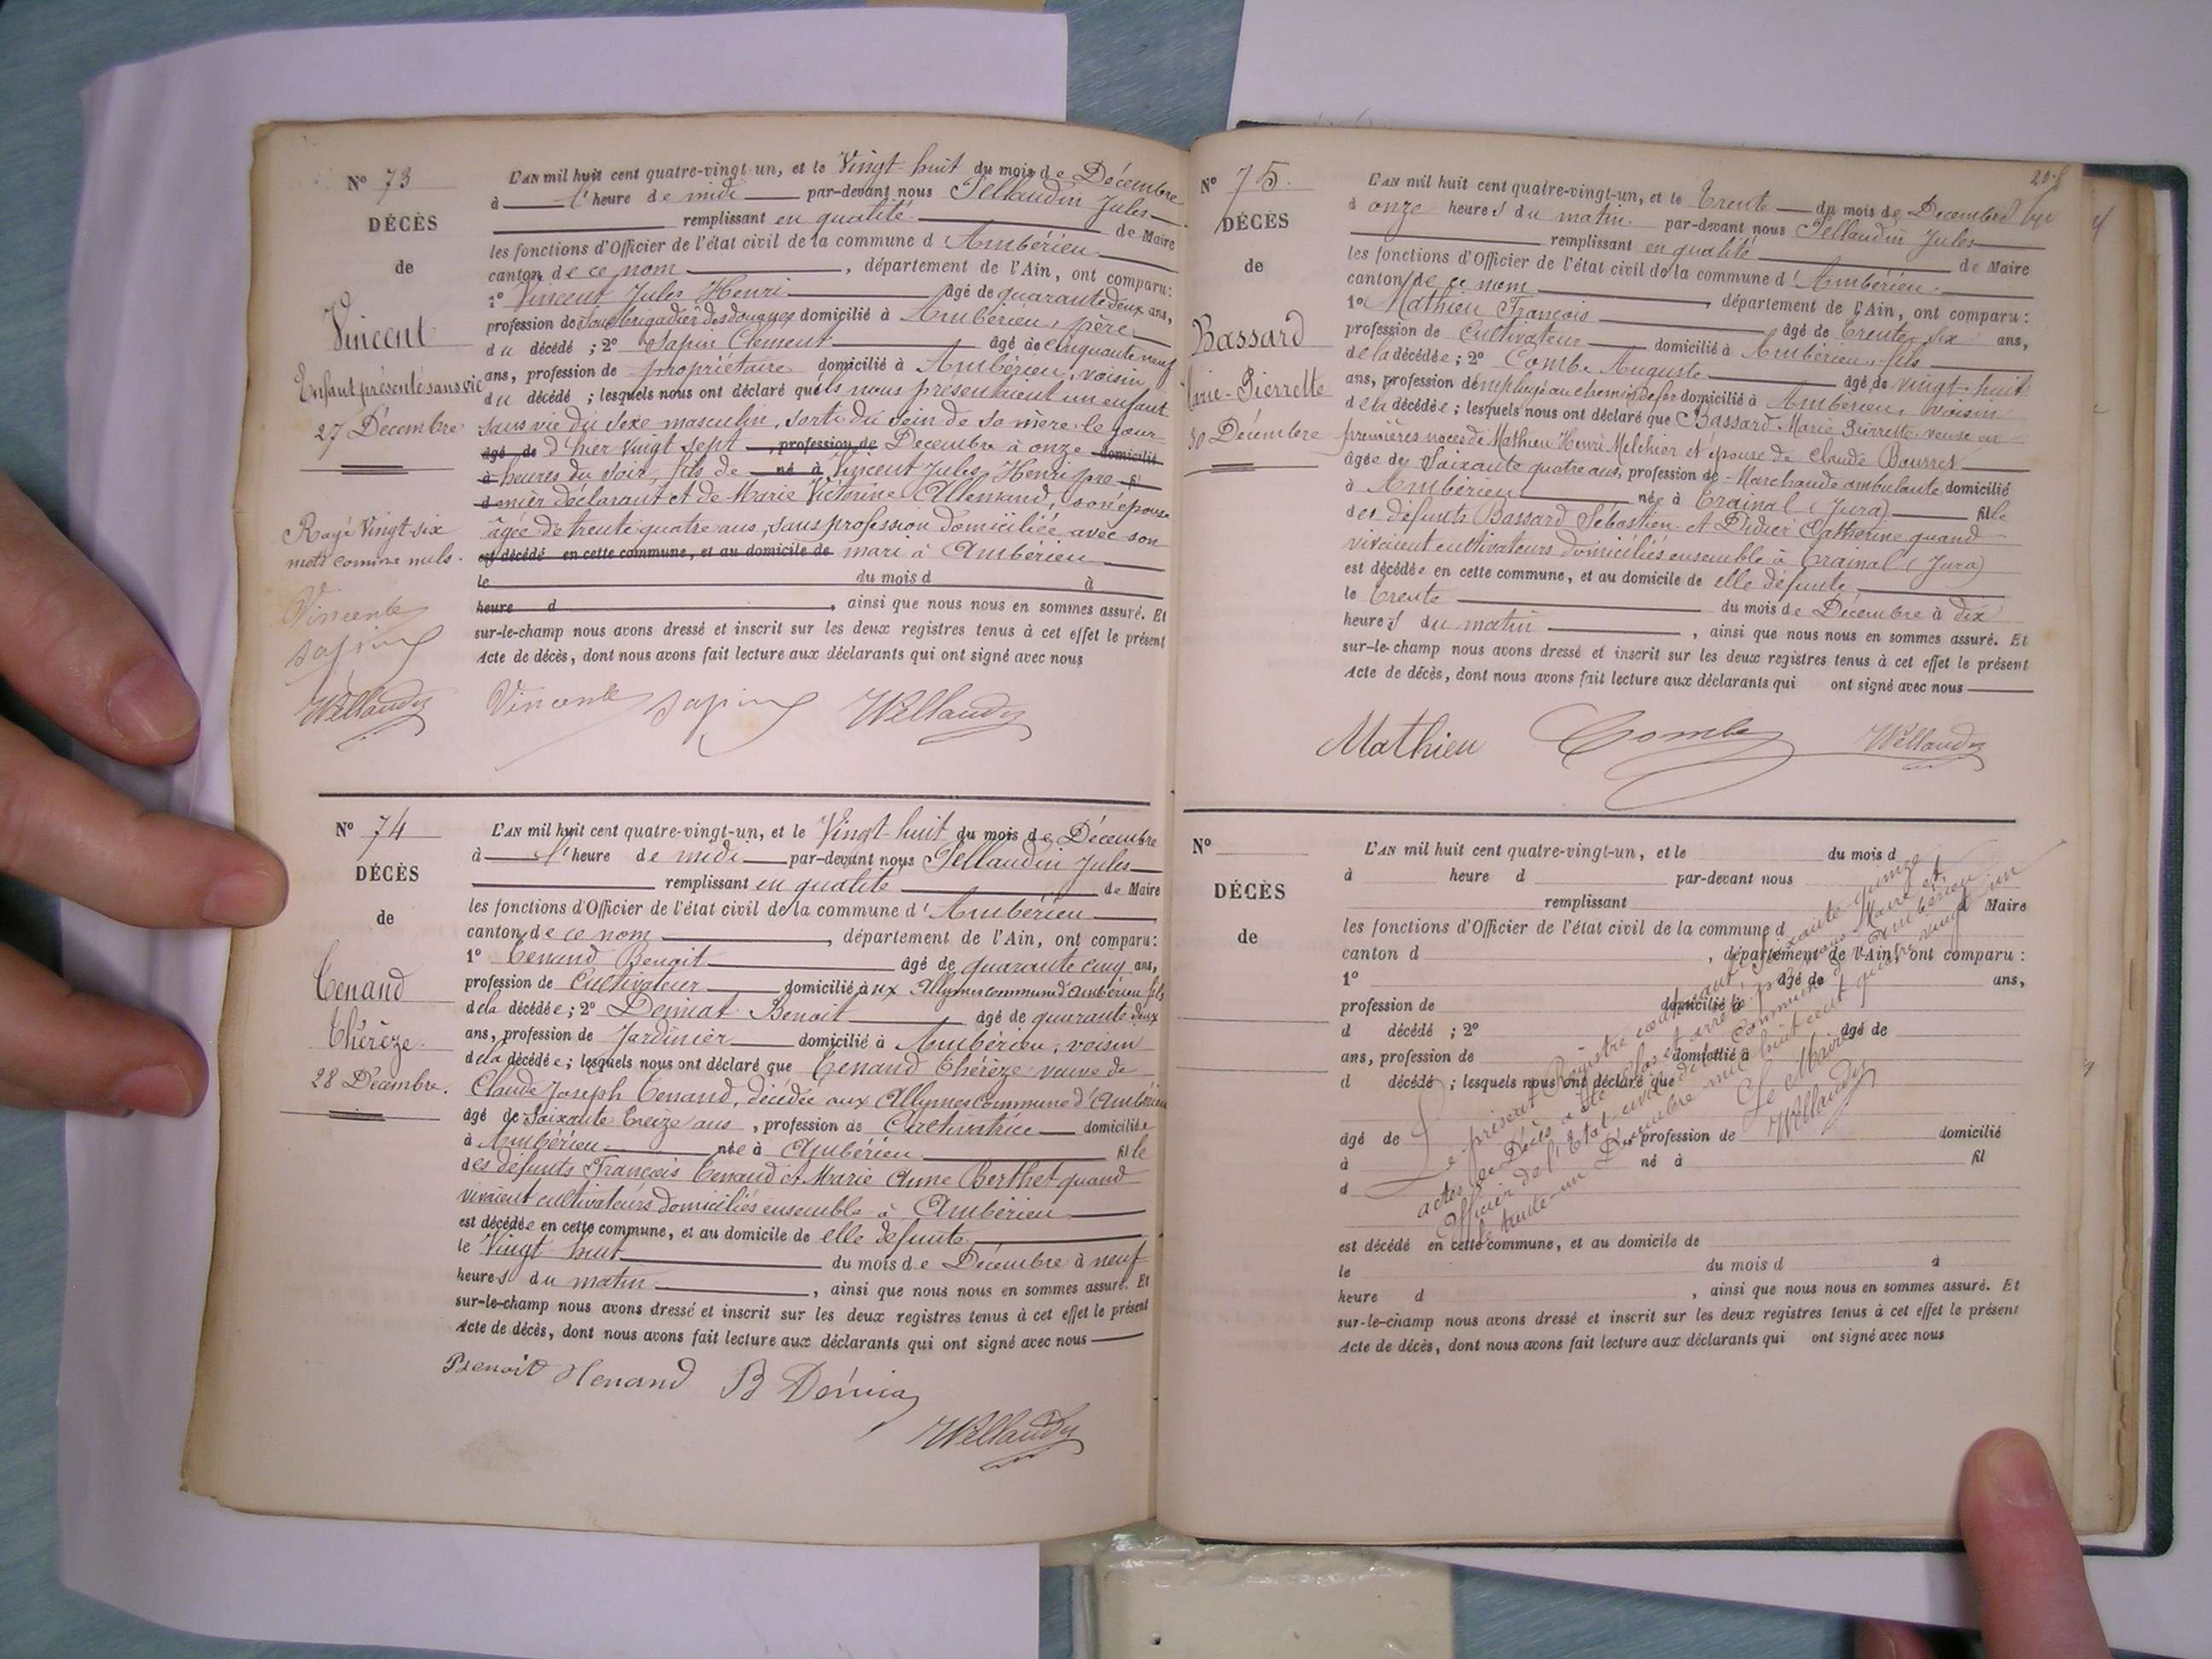 N° 73
DÉCÈS
de
Vincent
Enfant présenté sans vie
27 Décembre
Rayé Vingt-six
mots comme nuls.
Vincent
Sapin
L'AN mil huit cent quatre-vingt un, et le Vingt huit du mois de Décembre
à l'heure de midi par-devant nous Jules
remplissant en qualité de Maire
les fonctions d'Officier de l'état civil de la commune d Ambérieu
canton de ce nom, département de l'Ain, ont comparu:
1° Vincent Jules Henri âgé de quarante deux ans,
profession de Sous brigadier des douanes domicilié à Ambérieu, père
du décédé ; 2° Sapin Clément âgé de cinquante neuf
ans, profession de propriétaire domicilié à Ambérieu, voisin
du décédé ; lesquels nous ont déclaré qu'ils nous présentaient un enfant
sans vie du sexe masculin, sorti du sein de sa mère le jour
âgé de d'hier vingt sept profession de Décembre à onze domicilié
à heures du soir, fils de né à Vincent Jules Henri pre fil
d mier déclarant et de Marie Victorine Allemand, son épouse
âgée de trente quatre ans, sans profession domiciliée avec son
est décédé en cette commune, et au domicile de mari à Ambérieu
le du mois d à
heure d , ainsi que nous nous en sommes assuré. Et
sur-le-champ nous avons dressé et inscrit sur les deux registres tenus à cet effet le présent
Acte de décès, dont nous avons fait lecture aux déclarants qui ont signé avec nous
Vincent Sapin
N° 74
DÉCÈS
de
Tenand
Thérèze
28 Décembre.
L'AN mil huit cent quatre-vingt-un, et le Vingt huit du mois de Décembre
à l'heure de midi par-devant nous Jules
remplissant en qualité de Maire
les fonctions d'Officier de l'état civil de la commune d'Ambérieu
canton de ce nom, département de l'Ain, ont comparu:
1° Tenand Benoit âgé de quarante cinq ans,
profession de Cultivateur domicilié à ux Allymes commune d'Ambérieu fils
de la décédée; 2° Demiat Benoit âgé de quarante deux
ans, profession de Jardinier domicilié à Ambérieu, voisin
de la décédée; lesquels nous ont déclaré que Tenand Thérèze veuve de
Claude Joseph Tenand, décédée aux Allymes Commune d'Ambérieu
âgé de Soixante treize ans, profession de Cultivatrice domiciliée
à Ambérieu née à Ambérieu fille
des défunts François Tenand et Marie Anne Berthet quand
vivaient cultivateurs domiciliés ensemble à Ambérieu
est décédée en cette commune, et au domicile de elle défunte
le Vingt huit du mois de Décembre à neuf
heures du matin, ainsi que nous nous en sommes assuré. Et
sur-le-champ nous avons dressé et inscrit sur les deux registres tenus à cet effet le présent
Acte de décès, dont nous avons fait lecture aux déclarants qui ont signé avec nous
Benoit Tenand B Démia
N° 75.
DÉCÈS
de
Bassard
Marie-Pierrette
30 Décembre
L'AN mil huit cent quatre-vingt-un, et le Trente du mois de Décembre
à onze heures du matin par-devant nous Jules
remplissant en qualité de Maire
les fonctions d'Officier de l'état civil de la commune d'Ambérieu
canton de ce nom, département de l'Ain, ont comparu:
1° Mathieu François âgé de trente six ans,
profession de Cultivateur domicilié à Ambérieu, fils
de la décédée; 2° Combe Auguste âgé de vingt-huit
ans, profession d'employé au chemin de fer domicilié à Ambérieu, voisin
de la décédée; lesquels nous ont déclaré que Bassard Marie Pierrette veuve en
premières noces de Mathieu Henri Melchior et épouse de Claude Bourret
âgée de Soixante quatre ans, profession de Marchande ambulante domicilié
à Ambérieu née à Crainal (Jura) fille
des défunts Bassard Sébastien et Didier Catherine quand
vivaient cultivateurs domiciliés ensemble à Crainal (Jura)
est décédée en cette commune, et au domicile de elle défunte
le trente du mois de Décembre à dix
heures du matin, ainsi que nous nous en sommes assuré. Et
sur-le-champ nous avons dressé et inscrit sur les deux registres tenus à cet effet le présent
Acte de décès, dont nous avons fait lecture aux déclarants qui ont signé avec nous
Mathieu Combe
N°
DÉCÈS
de
L'AN mil huit cent quatre-vingt-un, et le du mois d
à heure d par-devant nous
remplissant d Maire
les fonctions d'Officier de l'état civil de la commune d
canton d , département de l'Ain, ont comparu:
1° âgé de ans,
profession de domicilié à
d décédé ; 2° âgé de
ans, profession de domicilié à
d décédé ; lesquels nous ont déclaré que
âgé de profession de domicilié
à né à fil
d
est décédé en cette commune, et au domicile de
le du mois d à
heure d , ainsi que nous nous en sommes assuré. Et
sur-le-champ nous avons dressé et inscrit sur les deux registres tenus à cet effet le présent
Acte de décès, dont nous avons fait lecture aux déclarants qui ont signé avec nous
Le présent Registre contenant Soixante quinze
actes de Décès a été clos et arrêté par nous Maire et
Officier de l'Etat civil de la Commune d'Ambérieu
le trente-un Décembre mil huit cent quatre vingt un
Le Maire